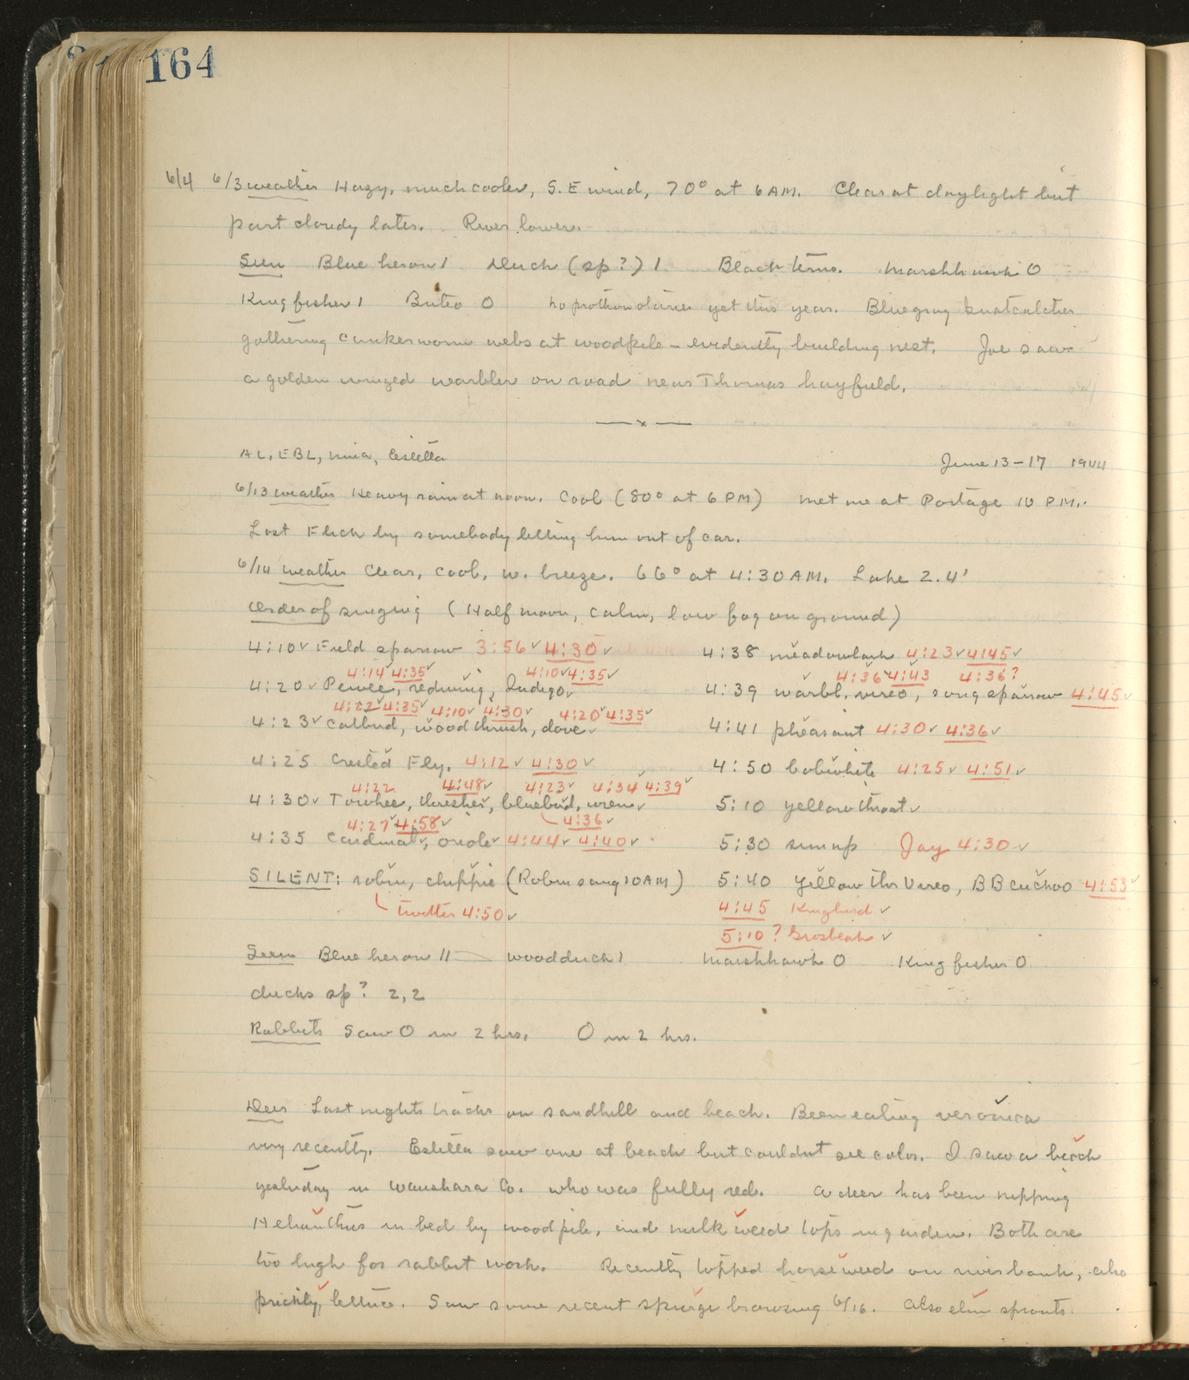 164
6/4 6/3 weather Hazy, much cooler, S.E wind, 70° at 6 AM. Clear at daylight but
part cloudy later. River lower.
Seen Blue heron 1 Duck (sp?) 1 Black terns. Marshhawk 0
Kingfisher 1 Buteo 0 No prothonotaries yet this year. Bluegray gnatcatcher
gathering cankerworm webs at woodpile - evidently building nest. Joe saw
a golden winged warbler on road near Thomas hayfield.
—x—
AL, EBL, Nina, Estella June 13-17 1944
6/13 weather Heavy rain at noon. Cool (80° at 6 PM) Met me at Portage 10 PM.
Lost Flick by somebody letting him out of car.
6/14 weather Clear, cool, w. breeze. 66° at 4:30 AM. Lake 2.4'
Order of singing (Half moon, calm, low fog on ground)
4:10✓ Field sparrow 3:56✓ 4:30✓ 4:38 meadowlark 4:23✓ 4:45✓
4:14✓ 4:35✓ 4:10✓ 4:35✓ 4:36✓ 4:43 4:36?
4:20✓ Pewee, redwing, Indigo✓ 4:39 warbl. vireo, song sparrow 4:45✓
4:22✓ 4:35✓ 4:10✓ 4:30✓ 4:20✓ 4:35✓
4:23✓ Catbird, wood thrush, dove✓ 4:41 pheasant 4:30✓ 4:36✓
4:25 Crested Fly. 4:12✓ 4:30✓ 4:50 bobwhite 4:25✓ 4:51✓
4:22 4:48✓ 4:23✓ 4:34✓ 4:39✓
4:30✓ Towhee, thrasher, bluebird, wren✓ 5:10 yellowthroat✓
4:27✓ 4:58✓ 4:36✓
4:35 Cardinal✓, oriole✓ 4:44✓ 4:40✓ 5:30 sun up Jay 4:30✓
SILENT: robin, chippie (Robin sang 10 AM) 5:40 Yellow thr Vireo, BB cuckoo 4:53✓
twitter 4:50✓ 4:45 Kingbird ✓
5:10? Grosbeak ✓
Seen Blue heron 11 woodduck 1 Marshhawk 0 Kingfisher 0
ducks sp? 2,2
Rabbits Saw 0 in 2 hrs. 0 in 2 hrs.
Deer Last nights tracks on sandhill and beach. Been eating veronica
very recently. Estella saw one at beach but couldnt see color. I saw a
yesterday in Waushara Co. who was fully red. A deer has been nipping
Helianthus in bed by woodpile, and milkweed tops in garden. Both are
too high for rabbit work. Recently topped horseweed on riverbank, also
prickly lettuce. Saw some recent spurge browsing 6/16. Also elm sprouts.